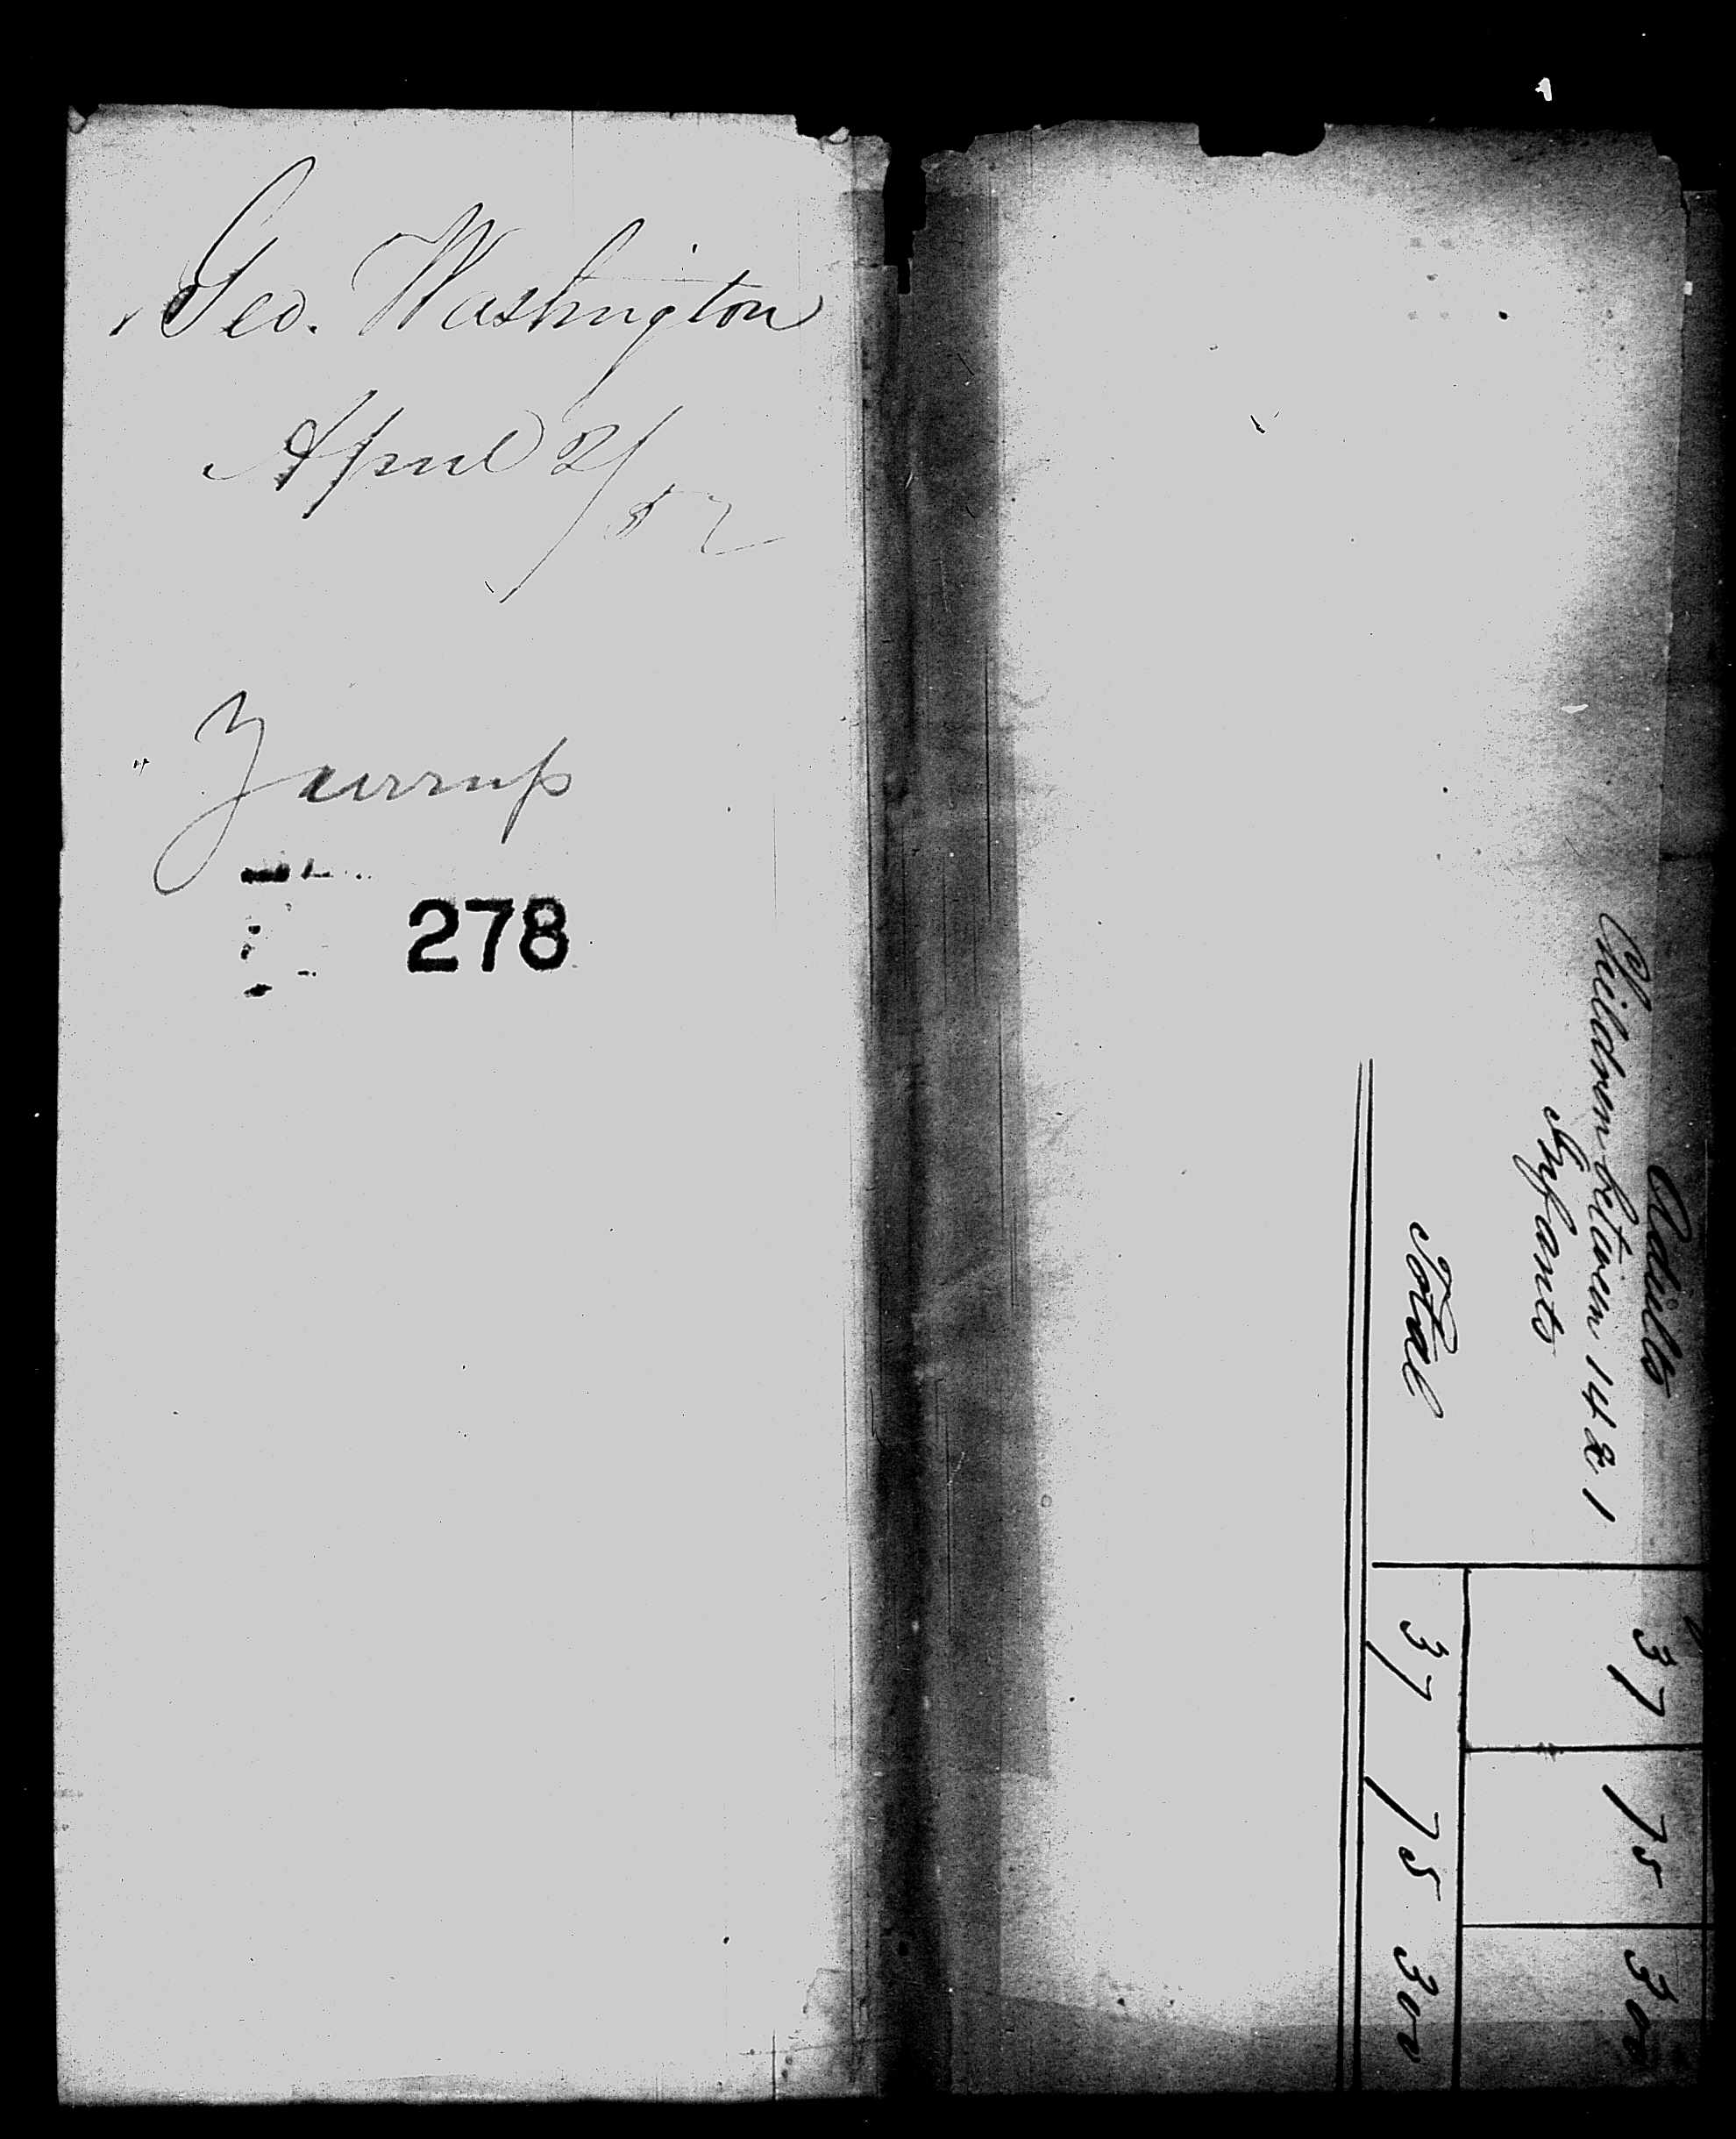 Geo. Washington
April 2/
82
278
Adults 37 75 300
Children between 14 & 1
Infants
Total 37 75 300